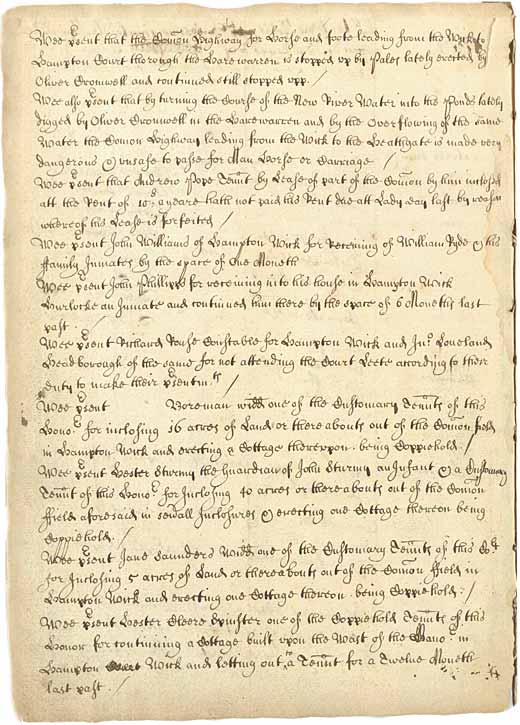 Wee p̱sent that the Com̄on Highway for Horse and foote leading from the Wick to
Hampton Court thorough the Harewarren is stopped up by Pales lately erected by
Oliver Cromwell and continued still stopped upp /
Wee also p̱sent that by turning the Course of the New River Water into the Ponds lately
digged by Oliver Cromwell in the Harewarren and by the Overflowing of the same
Water the Com̄on Highway leading from the Wick to the Heathgate is made very
dangerous & unsafe to passe for Man Horse or Carriage /
Wee p̱sent that Andrew Pope Ten̄nt by Lease of part of the Com̄on by him inclosed
att the Rent of 10s a yeare hath not paid his Rent due att Lady Day last by reason
whereof his Lease is forfeited /
Wee p̱sent John Williams of Hampton Wick for Receiving of William Hyde & his
ffamily Inmates by the space of One Moneth
Wee p̱sent John Phillipps for receiving into his house in Hampton Wick
Hurlocke an Inmate and continued him there by the space of 6 Moneths last
past /
Wee p̱sent Richard Rouse Constable for Hampton Wick and Jno. Loveland
Headborough of the same for not attending the Court Leete according to their
duty to make their p̱sentmts /
Wee p̱sent Boreman widd one of the Customary Ten̄nts of this
Honor for inclosing 16 acres of Land or there abouts out of the Com̄on field
in Hampton Wick and erecting a Cottage thereuppon being Coppiehold /
Wee p̱sent Hester Sturmy the Guardian of John Sturmy an Infant & a Customary
Ten̄nt of this Honor for Inclosing 40 acres or there abouts out of the Com̄on
ffield aforesaid in sev̄all Inclosures & erecting one Cottage thereon being
Coppiehold /
Wee p̱sent Jane Saunders Widd one of the Customary Ten̄nts of this
for Inclosing 5 acres of Land or thereabouts out of the Com̄on ffield in
Hampton Wick and erecting one Cottage thereon being Coppiehold /
Wee p̱sent Hester Cleere Spinster one of the Coppiehold Ten̄nts of this
Honor for continuing a Cottage built upon the Wast of the Mano.r in
Hampton Wick and letting out to a Ten̄nt for a Twelve Moneth
last past